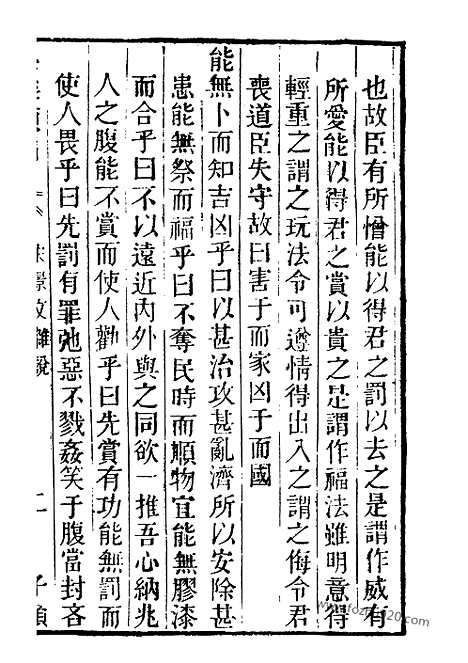 也故臣有所憎能以得君之罰以去之是謂作威有
所愛能以得君之賞以貴之是謂作福法雖明意得
輕重之謂之玩法令可遵情得出入之謂之侮令君
喪道臣失守故曰害于而家凶于而國
能無卜而知吉凶乎曰以甚治攻甚亂濟所以安除甚
患能無祭而福乎曰不奪民時而順物宜能無膠漆
而合乎曰不以遠近內外與之同欲一推吾心納兆
人之腹能不賞而使人勸乎曰先賞有功能無罰而
使人畏乎曰先罰有罪弛惡不戮姦笑于腹當封吝
景文雜說 二
www.fozhu920.com